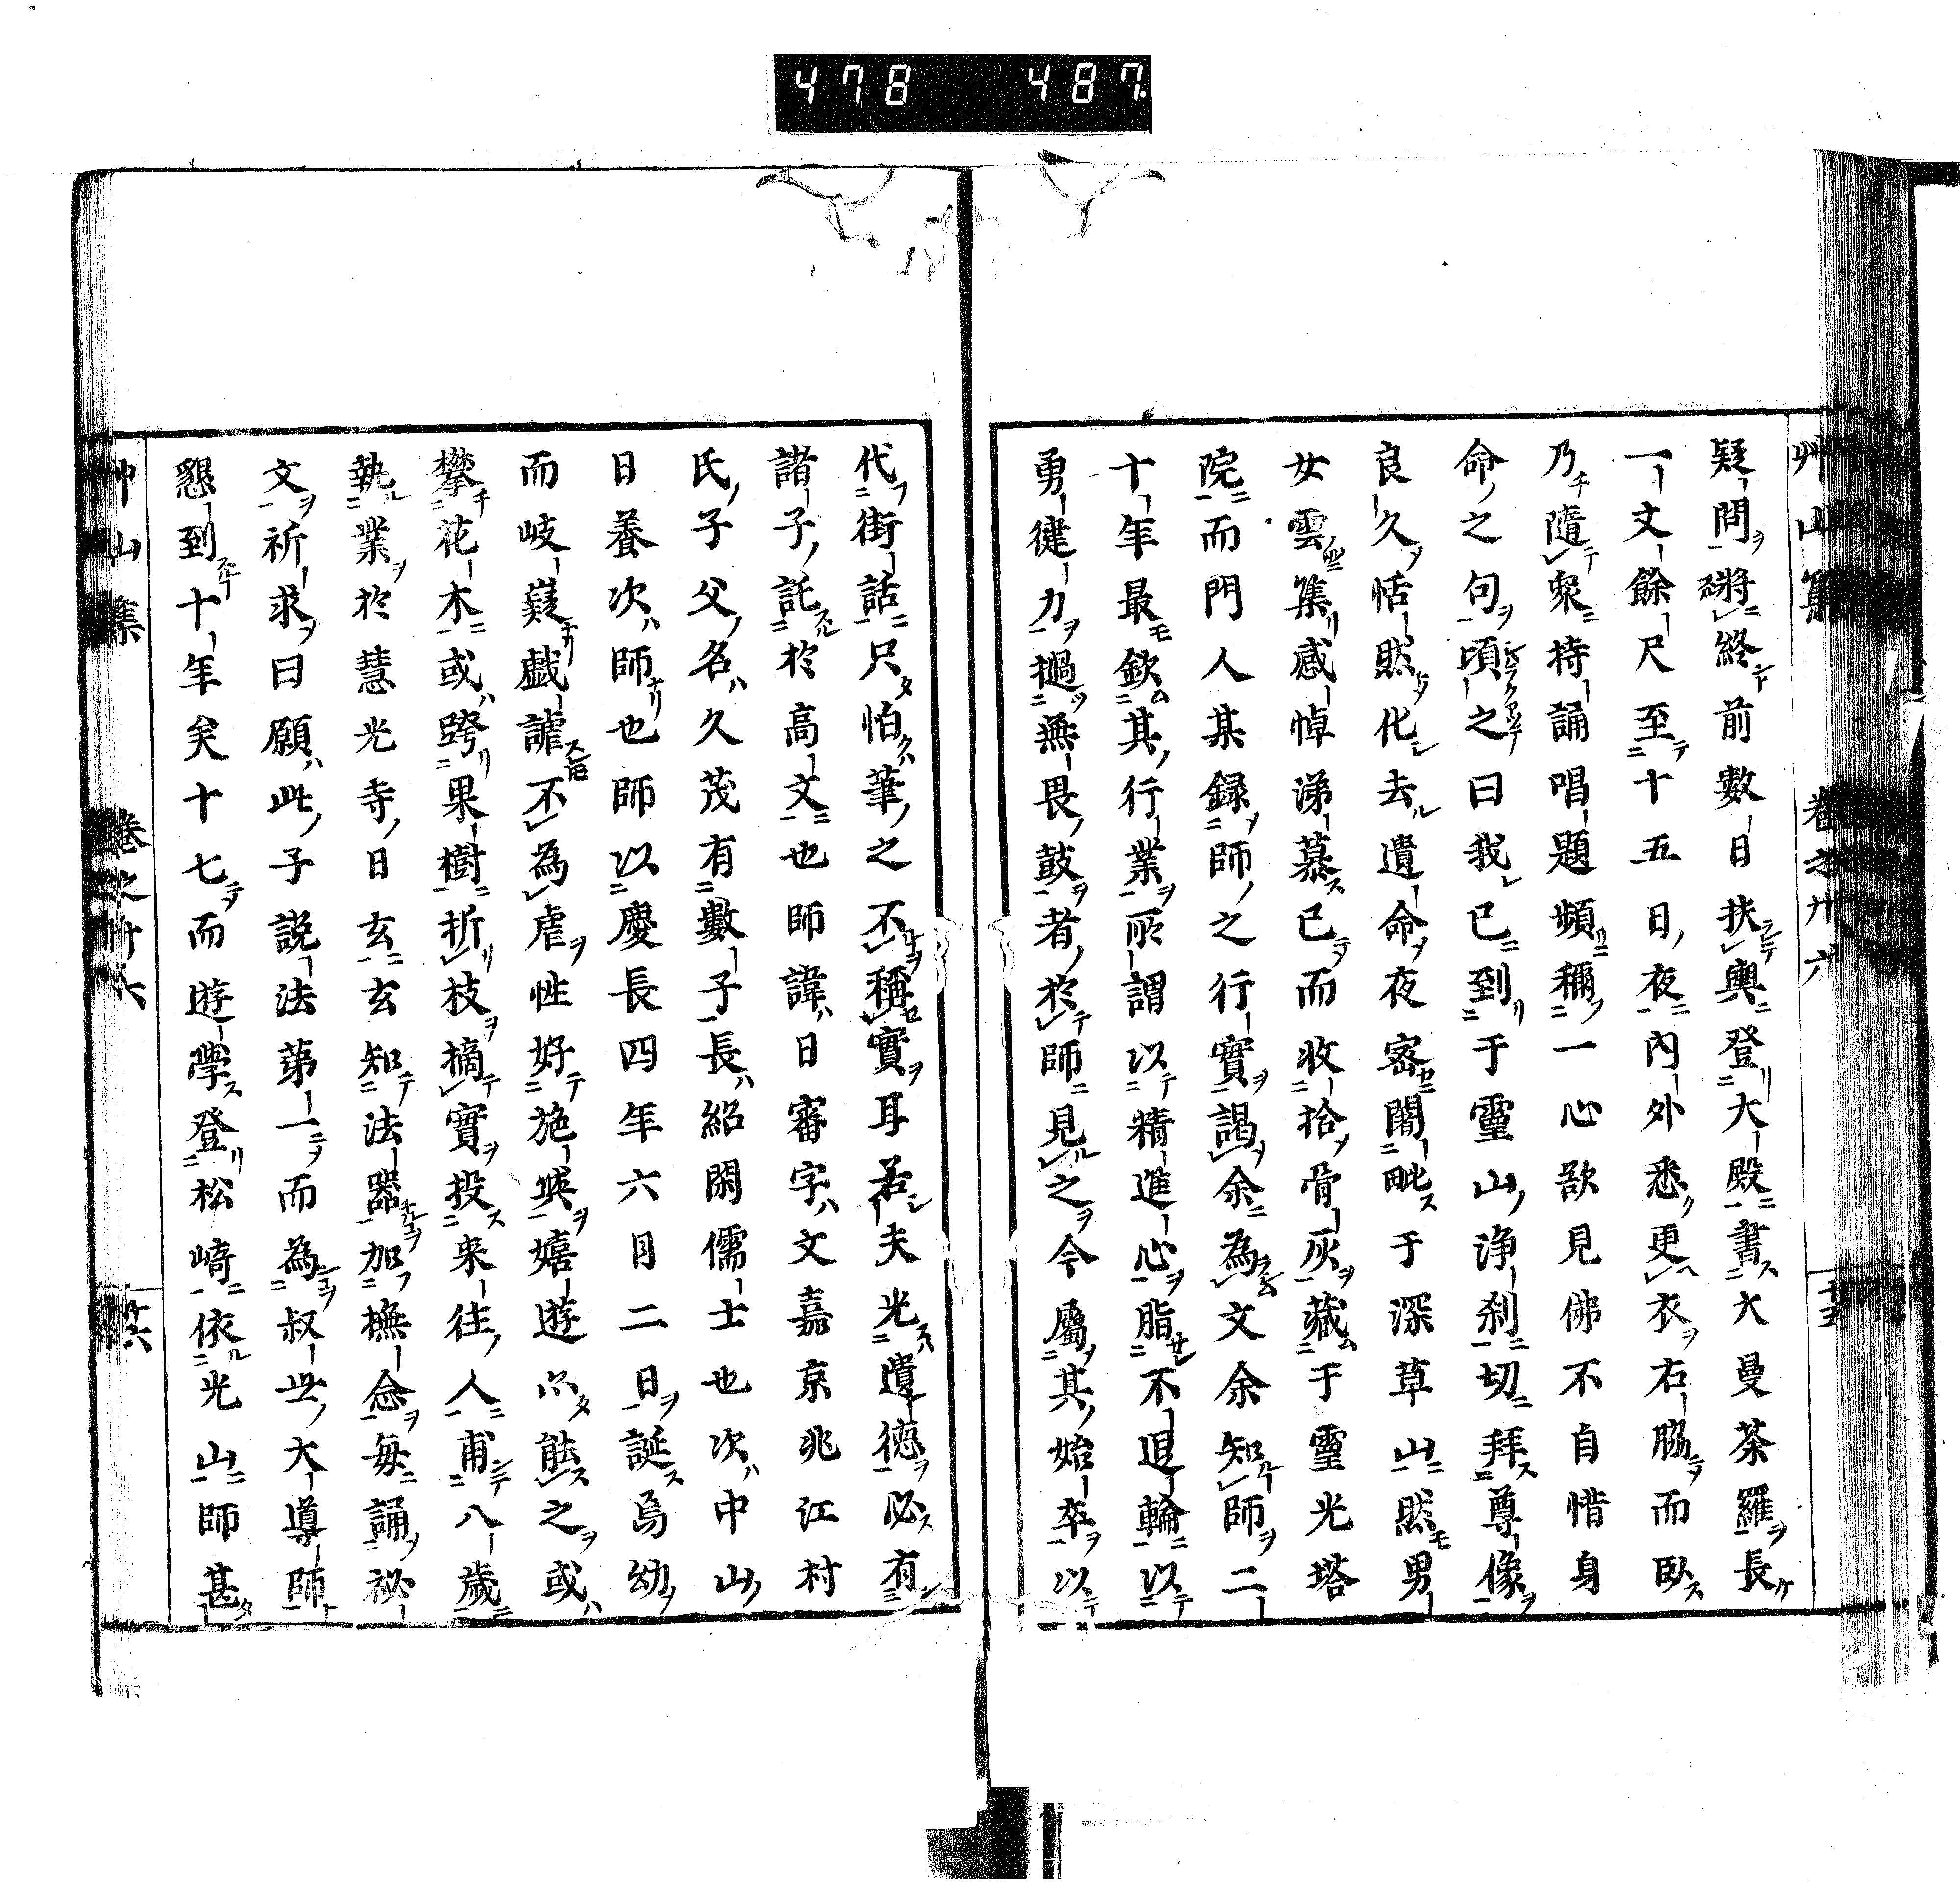 478 487
艸山集 卷之廿六 十五
疑問將終前數日扶輿登大殿書大曼荼羅長
一丈餘尺至十五日夜内外悉更衣右脇而臥
乃隨衆持誦唱題頻稱一心欲見佛不自惜身
命之句頃之曰我已到于靈山浄刹切拜尊像
良久恬然化去遺命夜密闍毗于深草山然男
女雲集感悼涕慕已而收拾骨灰藏于靈光塔
院而門人某録師之行實謁余為文余知師二
十年最欽其行業所謂以精進心脂不退輪以
勇健力撾無畏鼓者於師見之今屬其始卒以
代街話只怕筆之不稱實耳若夫光遺徳必有
諸子託於高文也師諱日審字文嘉京兆江村
氏子父名久茂有數子長紹閑儒士也次中山
日養次師也師以慶長四年六月二日誕焉幼
而岐嶷戯謔不為虐性好施與嬉遊以能之或
攀花木或跨果樹折枝摘實投来往人甫八歲
執業於慧光寺日玄玄知法器加撫念毎誦祕
文祈求曰願此子説法第一而為叔世大導師
懇到十年矣十七而遊學登松崎依光山師甚
艸山集 卷之廿六 十六